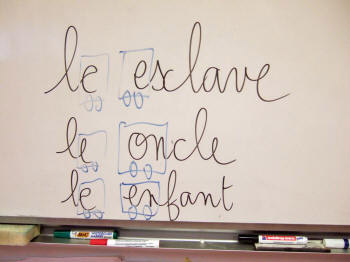 le esclave
le oncle
le enfant
BIC